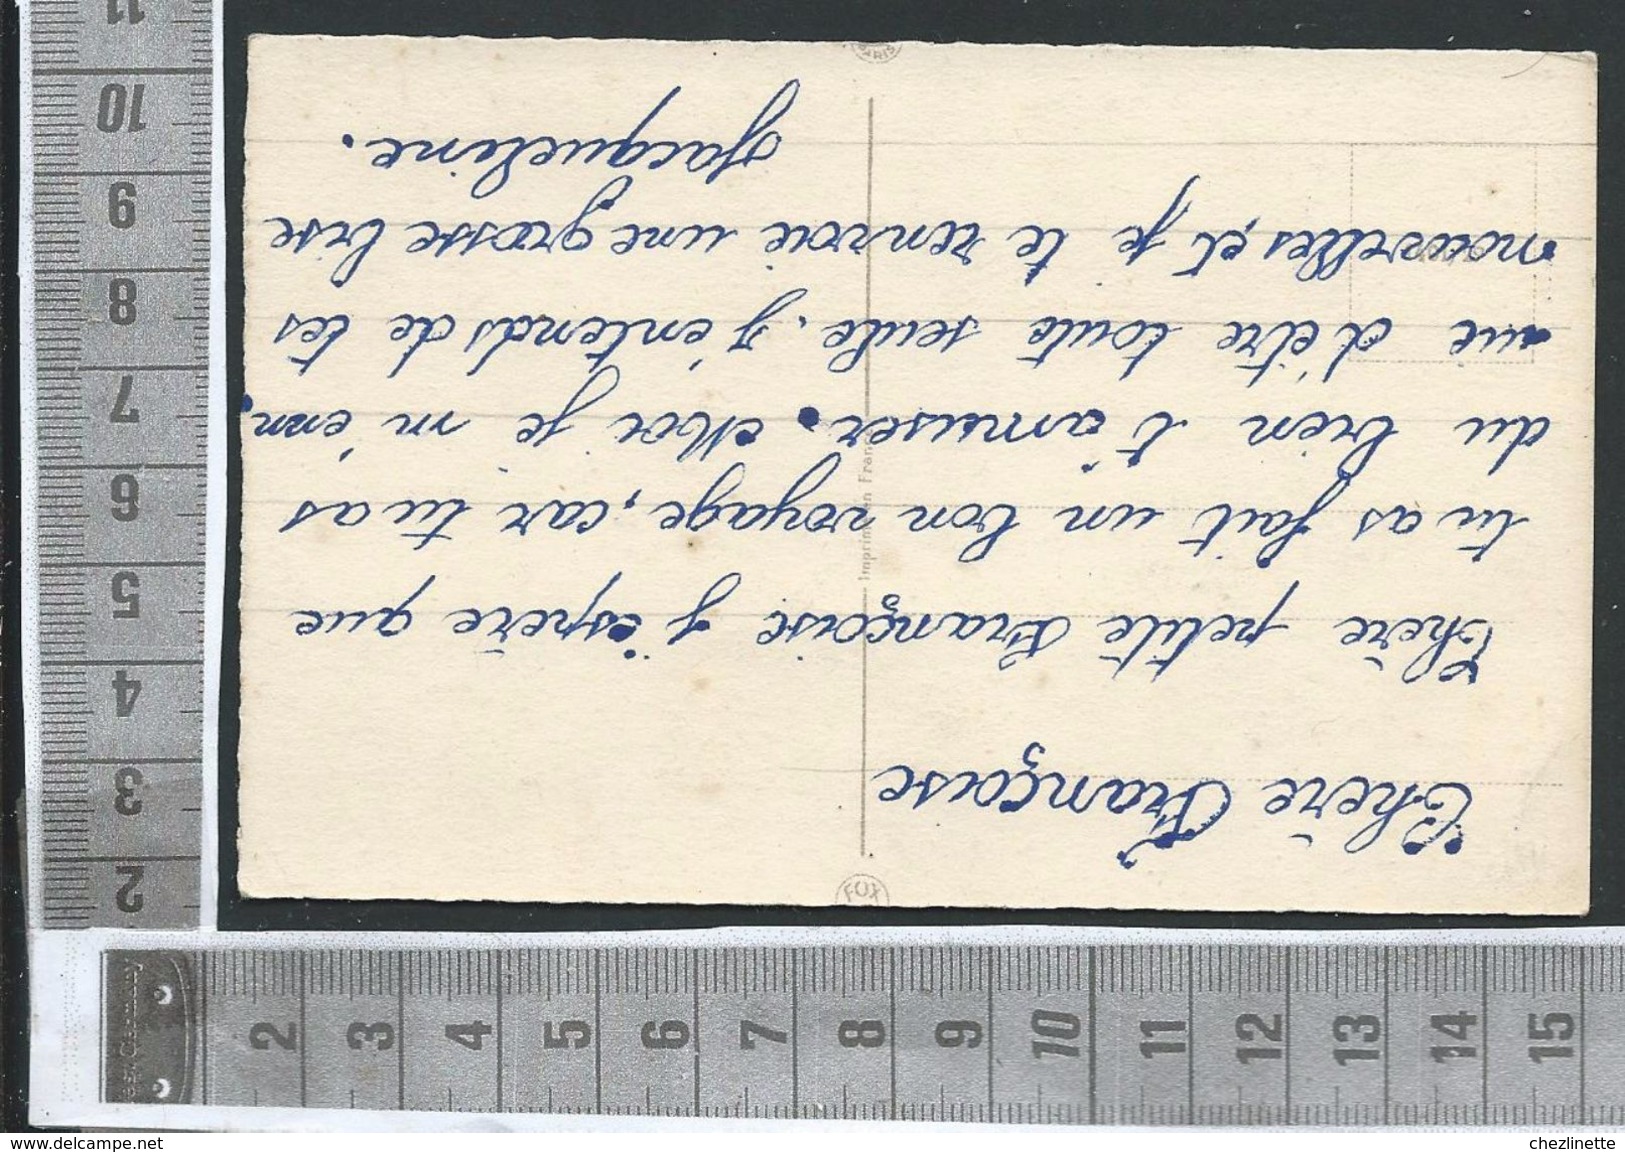 Chère Françoise
Chère petite Françoise j'éspère que
tu as fait un bon voyage, car tu as
du bien t'amuser. Moi je m'énn
uie d'être toute seule. j'entends de tes
nouvelles, et je te renvoie une grosse bise
Jacqueline.
Imprimé en France
FOX
PARIS
11
10
9
8
7
6
5
4
3
2
2 3 4 5 6 7 8 9 10 11 12 13 14 15
www.delcampe.net
chezlinette